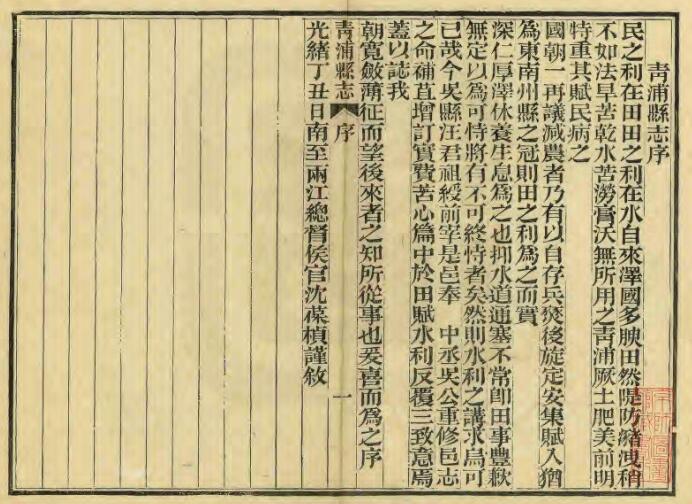 青浦縣志序
民之利在田田之利在水自來澤國多腴田然隄防瀦洩稍
不如法旱苦乾水苦澇膏沃無所用之青浦厥土肥美前明
特重其賦民病之
國朝一再議減農者乃有以自存兵燹後旋定安集賦入猶
為東南州縣之冠則田之利為之而實
深仁厚澤休養生息為之也抑水道通塞不常卽田事豐歉
無定以為可恃將有不可終恃者矣然則水利之講求烏可
已哉今吳縣汪君祖綬前宰是邑奉 中丞吳公重修邑志
之命補苴增訂實費苦心篇中於田賦水利反覆三致意焉
蓋以誌我
朝寬斂薄征而望後來者之知所從事也爰喜而為之序
青浦縣志 序 一
光緒丁丑日南至兩江總督侯官沈葆楨謹敘